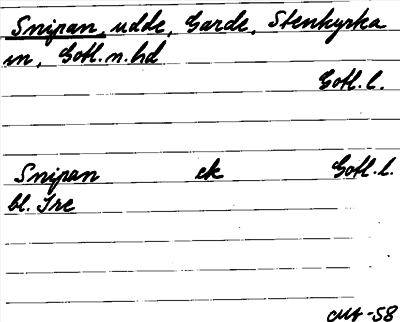 Snipan, udde, Garde, Stenkyrka
sn, Gotl. n. hd
Gotl. l.
Snipan ek Gotl. l.
bl. Ire
CMt -58